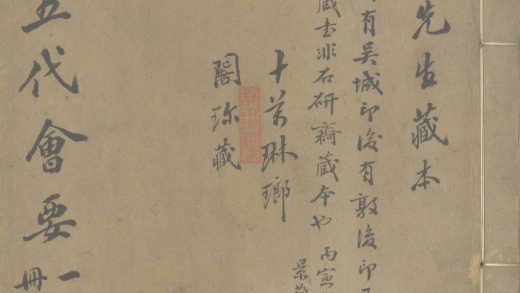 先生藏本
有吳城印後有敦復印
藏書非石研齋藏本也 丙寅
景
十萬琳瑯
閣珍藏
五代會要
一冊